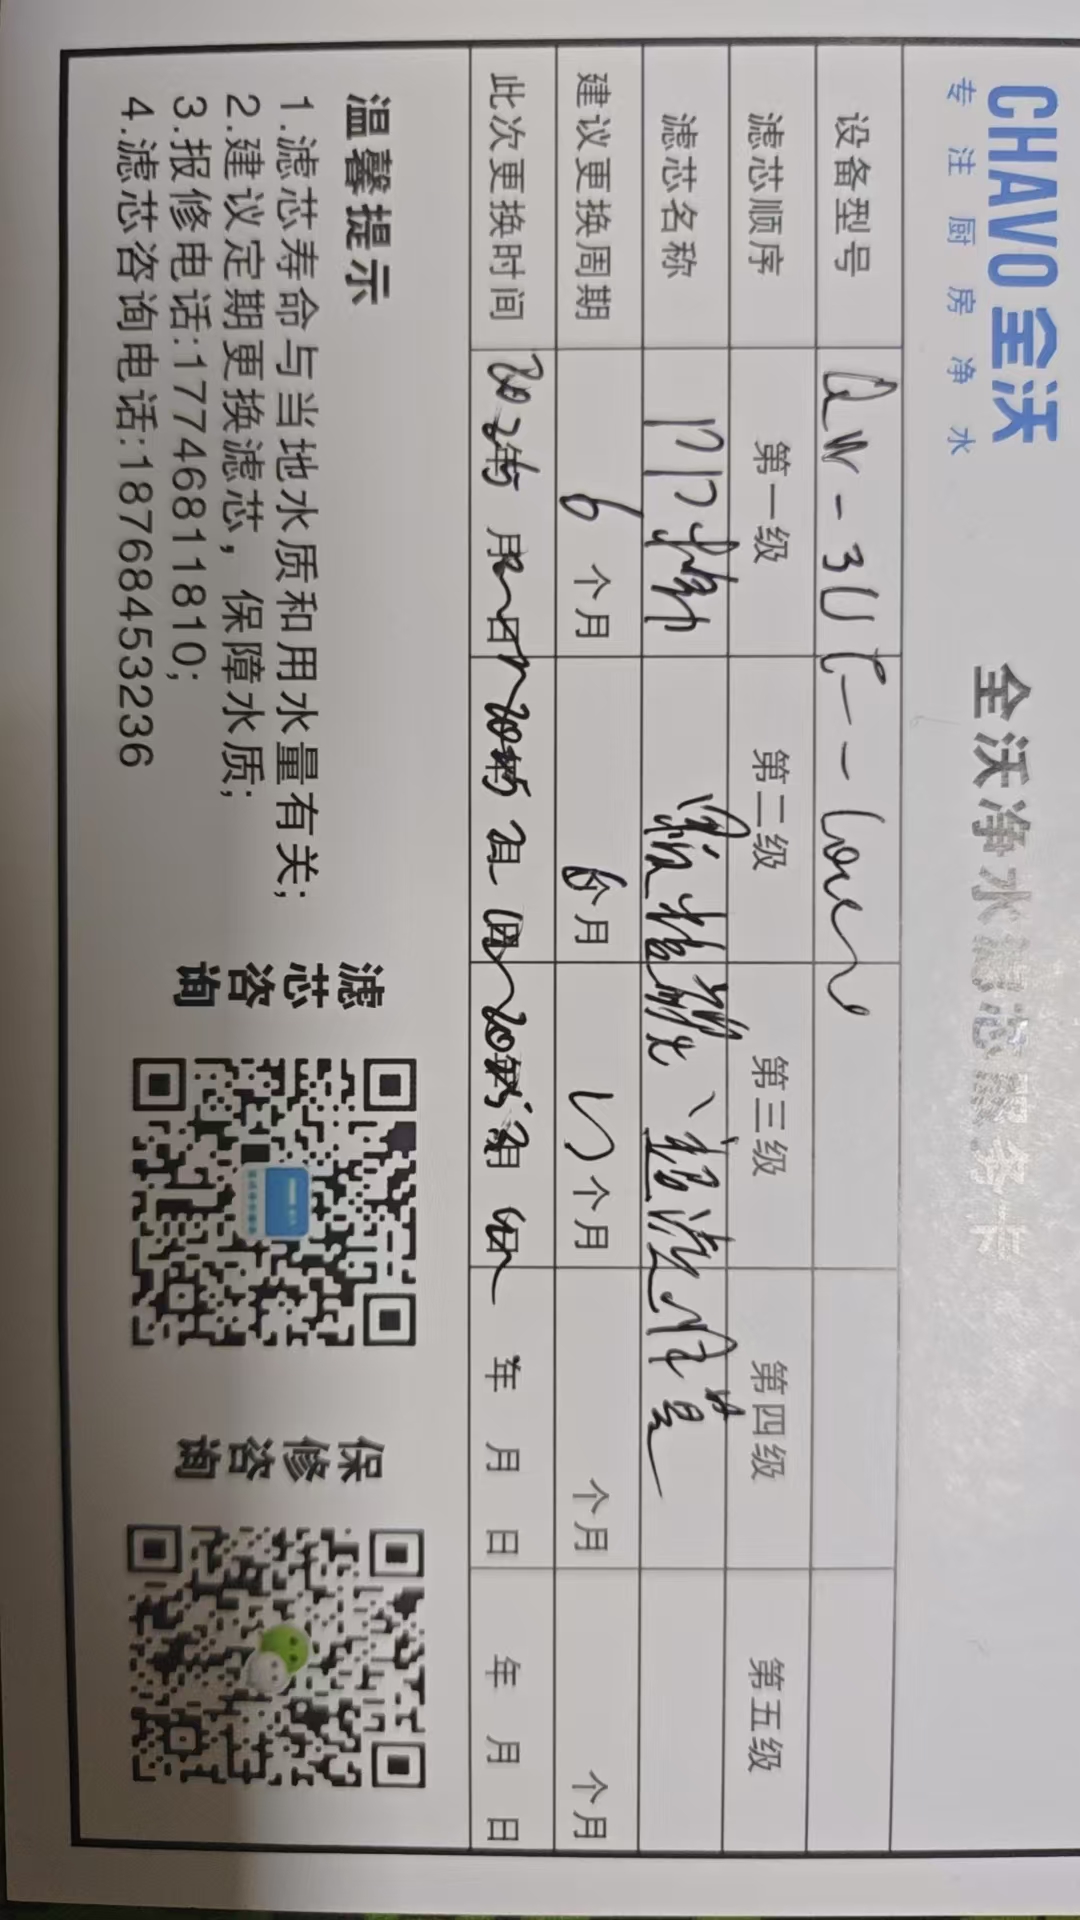 CHAVO 全沃
专注厨房净水
全沃净水滤芯服务卡
设备型号
滤芯顺序 第一级 第二级 第三级 第四级 第五级
滤芯名称 PP棉
建议更换周期 6个月 6个月 个月 个月 个月
此次更换时间 年 月 日 年 月 日 年 月 日 年 月 日 年 月 日
温馨提示
1.滤芯寿命与当地水质和用水量有关;
2.建议定期更换滤芯，保障水质;
3.报修电话:17746811810;
4.滤芯咨询电话:18768453236
滤芯咨询
保修咨询